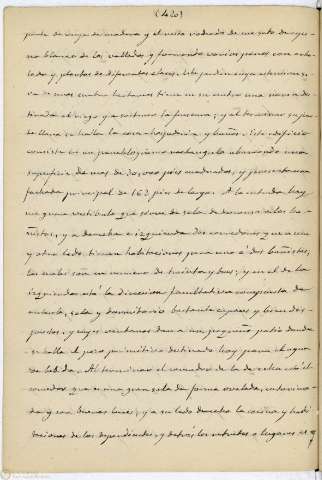 (420)
puerta de verja de madera y el resto rodeado de un seto de espi-
no blanco de los vallados y formando varios paseos con arbo-
lado y plantas de diferentes clases. Este jardin cuya estension es
de unos cuatro tiene en su centro una noria des-
tinada al riego y a sostener la frescura; y al terminar su par-
te llana se halla la casa hospederia y baños. Este edificio
consiste en un paralelógramo rectangulo abrazando una
superficie de mas de 20,000 pies cuadrados, y presenta una
fachada principal de 163 pies de largo. A la entrada hay
una gran vestibulo que sirve de sala de descanso a los ba-
ñistas, y a derecha e izquierda dos corredores que a uno
y otro lado tienen habitaciones para uno ó dos bañistes,
las cuales son en numero de treinta y dos; y en el de la
izquierda está la direccion facultativa compuesta de
antesala, sala y dormitorio bastante capaces y bien dis-
puestos, y cuyas ventanas dan a un pequeño patio donde
se halla el pozo primitivo destinado hoy para el agua
de bebida. Al terminar el corredor de la derecha está el
comedor que es una gran sala de forma ovalada, entarima-
da y con buenas luces; y a su lado derecho la cocina y habi-
taciones de los dependientes, y detrás los retretes o lugares